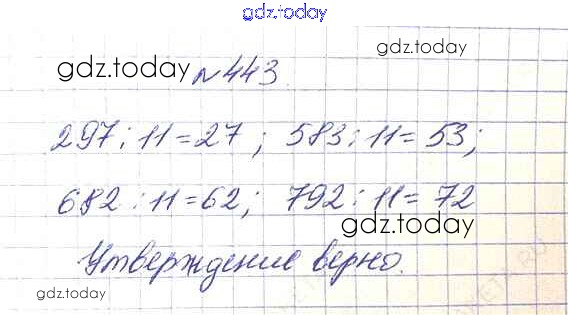 gdz.today
gdz.today
gdz.today №443.
297:11=27; 583:11=53;
682:11=62; 792:11=72
gdz.today
Утверждение верно.
gdz.today